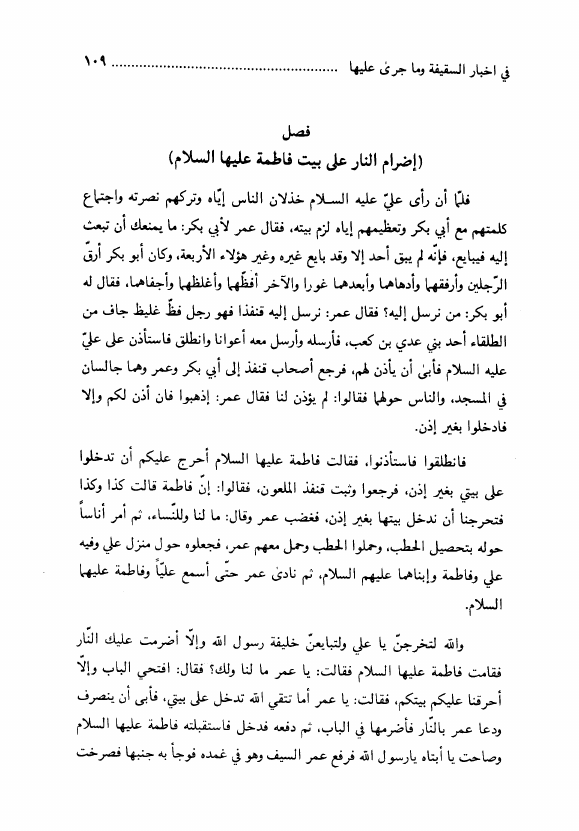 في اخبار السقيفة وما جرىٰ عليها ........................................................ ١٠٩
فصل
(إضرام النار على بيت فاطمة عليها السلام)
فلمّا أن رأى عليّ عليه السـلام خذلان الناس إيّاه وتركهم نصرته واجتماع
كلمتهم مع أبي بكر وتعظيمهم إياه لزم بيته، فقال عمر لأبي بكر: ما يمنعك أن تبعث
إليه فيبايع، فإنّه لم يبق أحد إلا وقد بايع غيره وغير هؤلاء الأربعة، وكان أبو بكر أرقّ
الرّجلين وأرفقهما وأدهاهما وأبعدهما غورا والآخر أفظّهما وأغلظهما وأجفاهما، فقال له
أبو بكر: من نرسل إليه؟ فقال عمر: نرسل إليه قنفذا فهو رجل فظّ غليظ جاف من
الطلقاء أحد بني عدي بن كعب، فأرسله وأرسل معه أعوانا وانطلق فاستأذن على عليّ
عليه السلام فأبىٰ أن يأذن لهم، فرجع أصحاب قنفذ إلى أبي بكر وعمر وهما جالسان
في المسجد، والناس حولهما فقالوا: لم يؤذن لنا فقال عمر: إذهبوا فان أذن لكم وإلا
فادخلوا بغير إذن.
فانطلقوا فاستأذنوا، فقالت فاطمة عليها السلام أحرج عليكم أن تدخلوا
على بيتي بغير إذن، فرجعوا وثبت قنفذ الملعون، فقالوا: إنّ فاطمة قالت كذا وكذا
فتحرجنا أن ندخل بيتها بغير إذن، فغضب عمر وقال: ما لنا وللنّساء، ثم أمر أناساً
حوله بتحصيل الحطب، وحملوا الحطب وحمل معهم عمر، فجعلوه حول منزل علي وفيه
علي وفاطمة وإبناهما عليهم السلام، ثم نادىٰ عمر حتّى أسمع عليّاً وفاطمة عليهما
السلام.
والله لتخرجنّ يا علي ولتبايعنّ خليفة رسول الله وإلّا أضرمت عليك النّار
فقامت فاطمة عليها السلام فقالت: يا عمر ما لنا ولك؟ فقال: افتحي الباب وإلّا
أحرقنا عليكم بيتكم، فقالت: يا عمر أما تتقي الله تدخل على بيتي، فأبى أن ينصرف
ودعا عمر بالنّار فأضرمها في الباب، ثم دفعه فدخل فاستقبلته فاطمة عليها السلام
وصاحت يا أبتاه يارسول الله فرفع عمر السيف وهو في غمده فوجأ به جنبها فصرخت